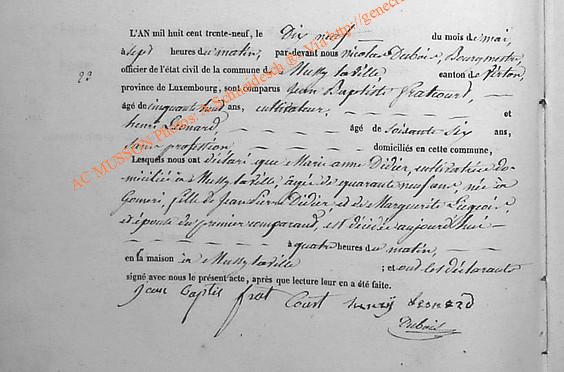 L'AN mil huit cent trente-neuf, le Dix neuf du mois de mai,
à sept heures du matin, par-devant nous nicolas Dubois, Bourgmestre,
officier de l'état civil de la commune de Mussy la ville canton de Virton,
province de Luxembourg, sont comparus Jean Baptiste fratcourt,
23
âgé de cinquante huit ans, cultivateur, et
henri Leonard, âgé de Soixante Six ans,
Sans profession domiciliés en cette commune,
Lesquels nous ont déclaré que Marie anne Didier, cultivatrice do-
miciliée à Mussy la ville, agée de quarante neuf ans, née à
Gomeri, fille de Jean Didier et de Marguerite
et épouse du premier comparant, est décédée aujourd'hui
à quatre heures du matin,
en sa maison à Mussy la ville ; et ont les déclarants
signé avec nous le présent acte, après que lecture leur en a été faite.
Jean Baptis frat Court henry Leonard
Dubois
AC MUSSON Photos: A Schneidesch @ Via http://genec